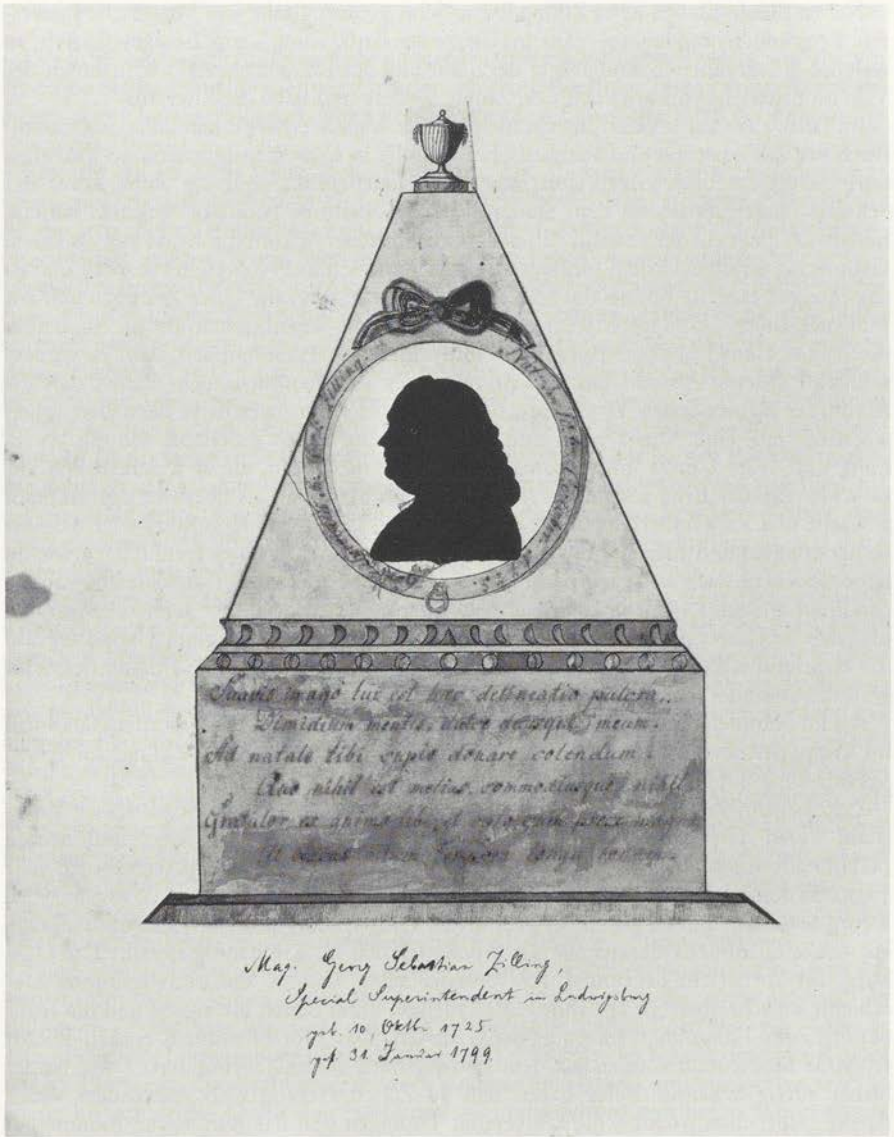 Zilling.
Nat.
October.
Suavis imago tui est haec delineatio pulcra..
Dimidium mentis, dulce decusque meum.
Ad natale tibi cupio donare colendum
Quo nihil est melius, commodiusque nihil
Gratulor ex animo tibi, et
tempora longa
Mag. Georg Sebastian Zilling,
Special Superintendent in Ludwigsburg
geb. 10. Oktb. 1725.
gest. 31. Januar 1799.